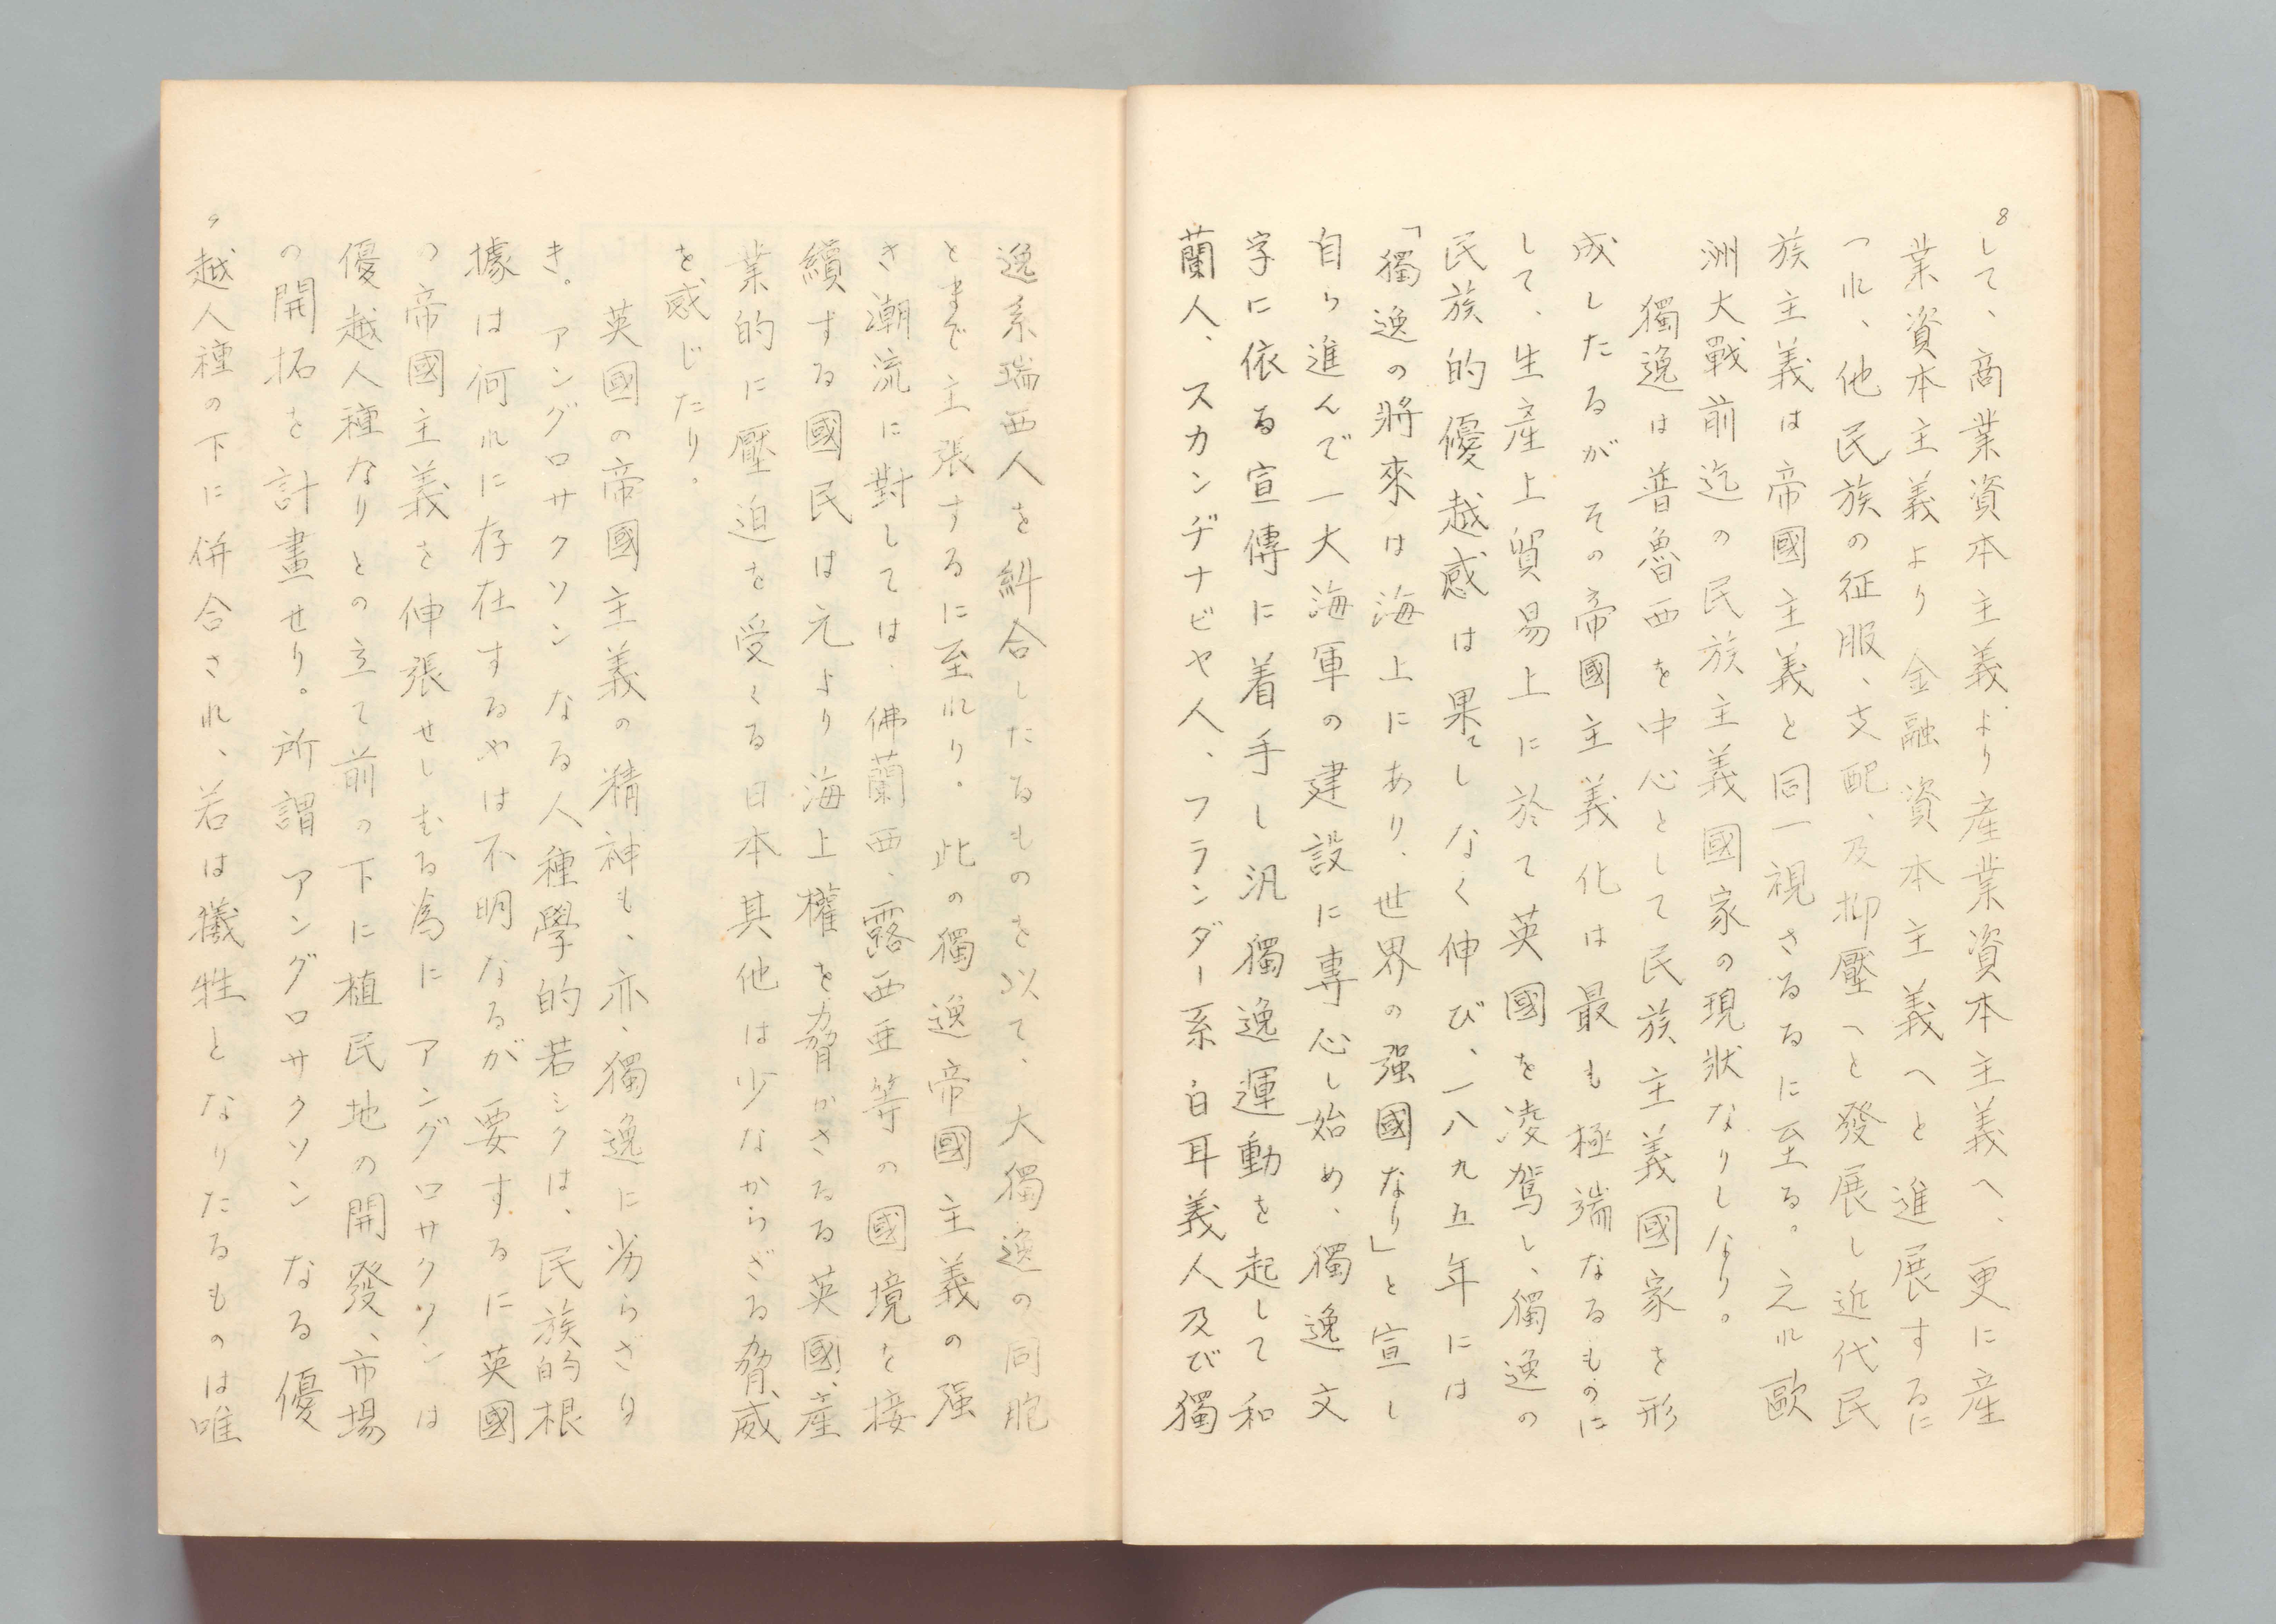 8
して、商業資本主義より産業資本主義へ、更に産
業資本主義より金融資本主義へと進展するに
つれ、他民族の征服、支配、及抑壓へと發展し近代民
族主義は帝國主義と同一視さるるに至る。之れ歐
洲大戰前迄の民族主義國家の現狀なりしなり。
獨逸は普魯西を中心として民族主義國家を形
成したるが その帝國主義化は最も極端なるものに
して、生產上貿易上に於て英國を凌駕し、獨逸の
民族的優越感は果てしなく伸び、一八九五年には
「獨逸の將來は海上にあり、世界の强國なり」と宣し
自ら進んで一大海軍の建設に專心し始め、獨逸文
字に依る宣傳に着手し汎獨逸運動を起して和
蘭人、スカンヂナビヤ人、フランダー系白耳義人及び獨
逸系瑞西人を糾合したるものを以て、大獨逸の同胞
とまで主張するに至れり。此の獨逸帝國主義の强
き潮流に對しては、佛蘭西、露西亜等の國境を接
續する國民は元より海上權を脅かさるる英國、產
業的に壓迫を受くる日本其他は少なからざる脅威
を感じたり。
英國の帝國主義の精神も、亦、獨逸に劣らざり
き。アングロサクソンなる人種學的若シクは、民族的根
據は何れに存在するやは不明なるが要するに英國
の帝國主義を伸張せしむる為に アングロサクソンは
優越人種なりとの立て前の下に植民地の開發、市場
の開拓を計畫せり。所謂アングロサクソンなる優
9
越人種の下に併合され、若は犠牲となりたるものは唯